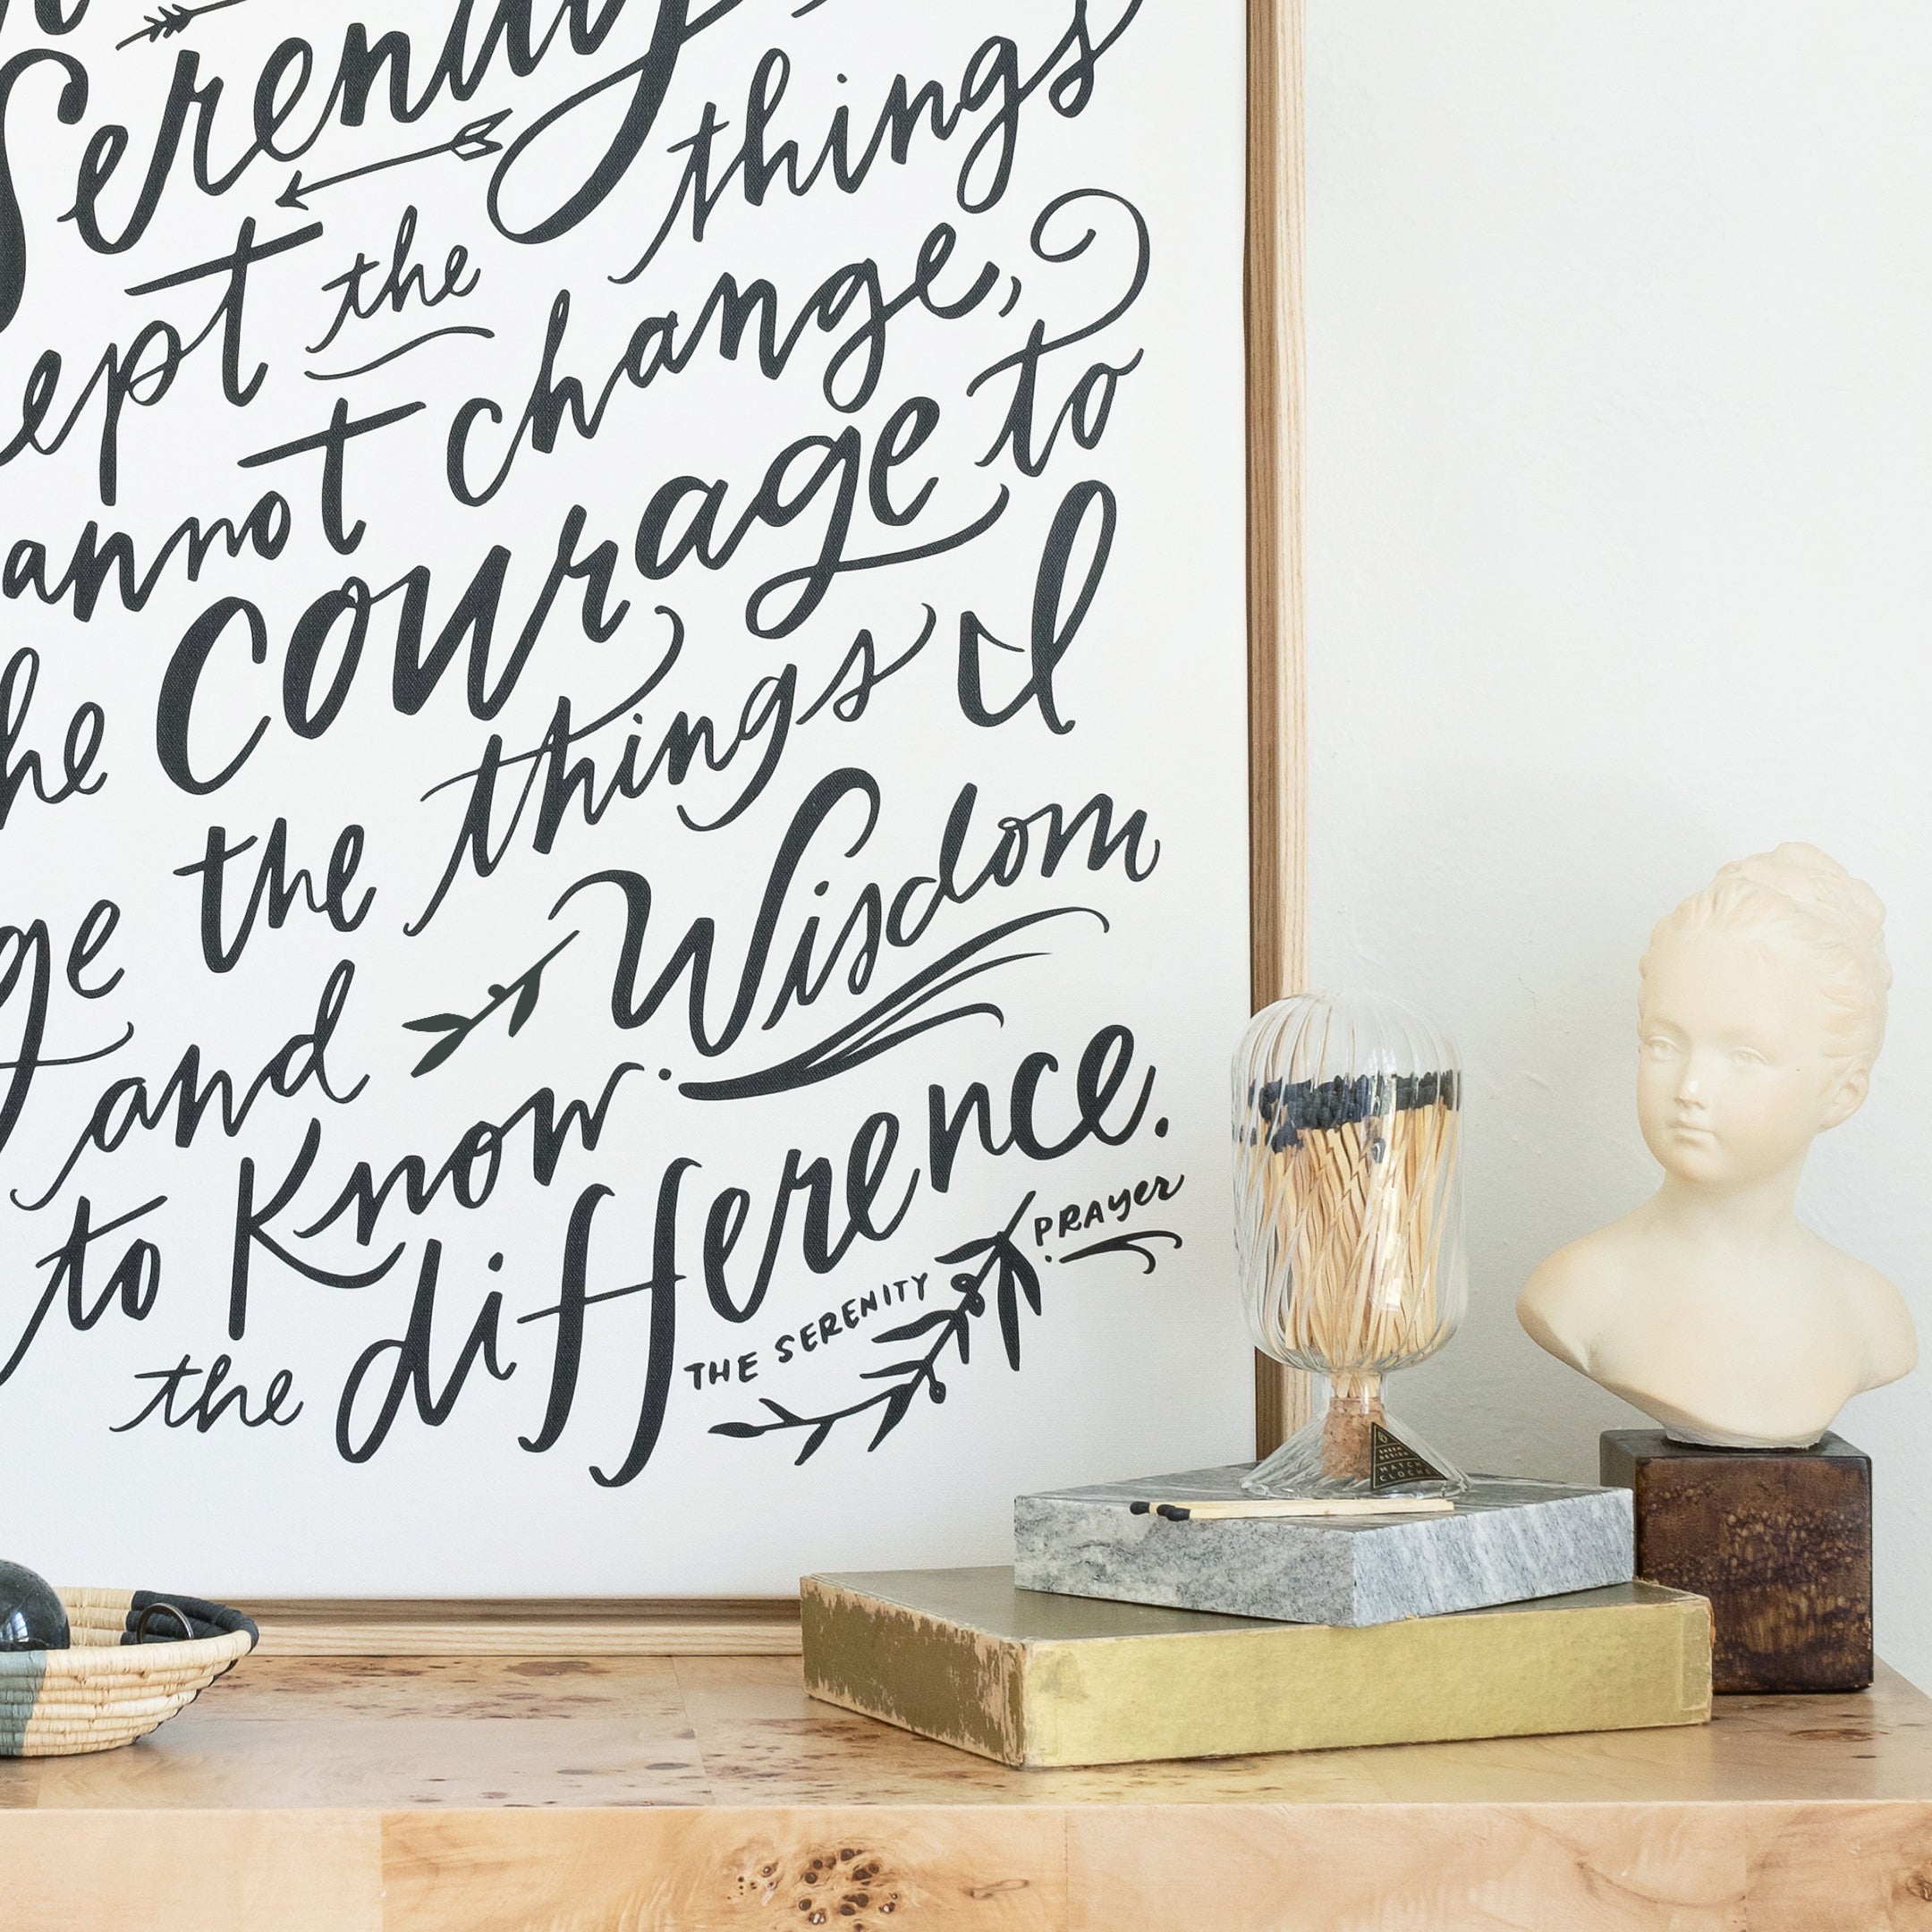 Serenity
ept the things
annot change,
he courage to
ge the things I
and Wisdom
to Know
the difference.
THE SERENITY PRAYER
MATCH
CLOCHE